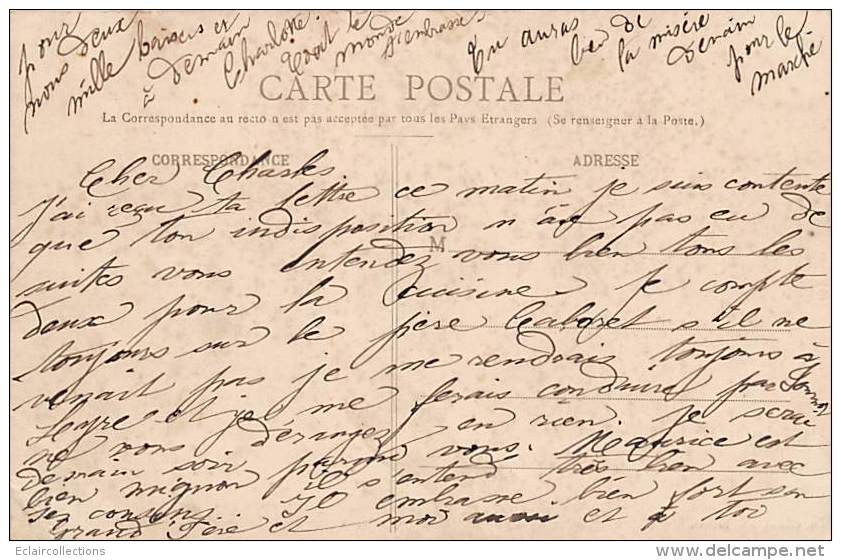 pour
nous deux
mille baisers et
à Demain
Charlotte
Tout le
monde
s'embrasse
Tu auras
bien de
la misère
Demain
pour le
marché
CARTE POSTALE
La Correspondance au recto n'est pas acceptée par tous les Pays Etrangers (Se renseigner à la Poste.)
CORRESPONDANCE
ADRESSE
M
Cher Charles
J'ai reçu ta lettre ce matin je suis contente
que ton indisposition n'ai pas eu de
suites vous entendez vous bien tous les
deux pour la cuisine. Je compte
toujours sur le père Caboret s'il ne
venait pas je me rendrais toujours à
Heyre et je me ferais conduire par
ne vous dérangez en rien. Je serai
demain soir parmi vous. Maurice est
bien mignon il s'entend très bien avec
ses cousins Il embrasse bien fort son
Grand Père et moi aussi et toi
Eclaircollections
www.delcampe.net